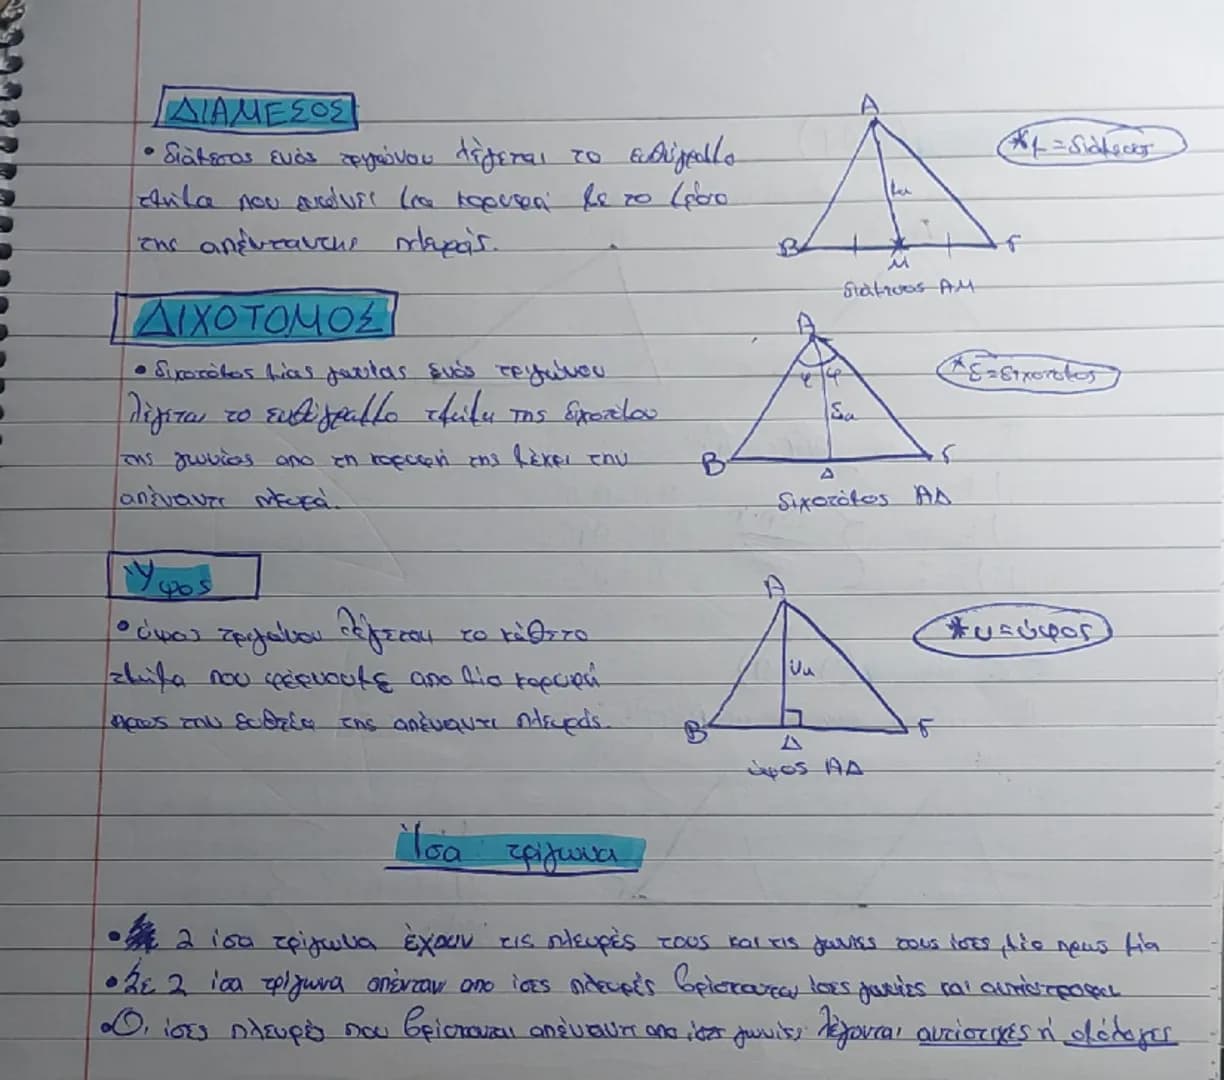 ΔΙΑΜΕΣΟΣ
• διάμεσος ενός τριγώνου λέγεται το ευθύγραμμο
τμήμα που ενώνει μια κορυφή με το μέσο
της απέναντι πλευράς.
Α
*μ=διάμεσος
μα
Β
Μ
Γ
διάμεσος ΑΜ
ΔΙΧΟΤΟΜΟΣ
• διχοτόμος μίας γωνίας ενός τριγώνου
λέγεται το ευθύγραμμο τμήμα της διχοτόμου
της γωνίας απο τη κορυφή της μέχρι την
απέναντι πλευρά.
Α
*δ=διχοτόμος
φ φ
δα
Β
Δ
Γ
διχοτόμος ΑΔ
Ύψος
• ύψος τριγώνου λέγεται το κάθετο
τμήμα που φέρνουμε απο μία κορυφή
προς την ευθεία της απέναντι πλευράς.
Α
*υ=ύψος
υα
Β
Δ
Γ
ύψος ΑΔ
Ίσα τρίγωνα
• 2 ίσα τρίγωνα έχουν τις πλευρές τους και τις γωνίες τους ίσες μία προς μία
• Σε 2 ίσα τρίγωνα απέναντι απο ίσες πλευρές βρίσκονται ίσες γωνίες και αντίστροφα
• Οι ίσες πλευρές που βρίσκονται απέναντι απο ίσες γωνίες λέγονται αντίστοιχες ή ομόλογες